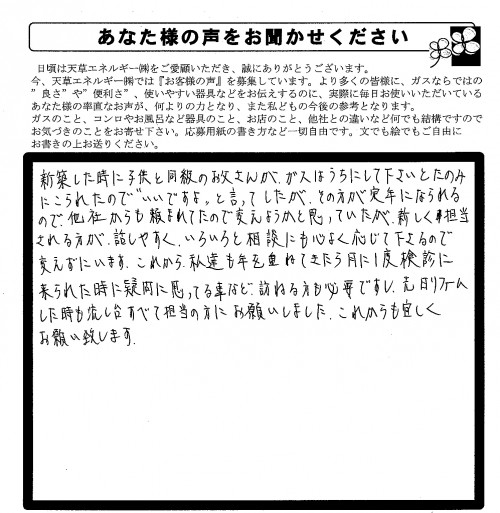 あなた様の声をお聞かせください
日頃は天草エネルギー㈱をご愛顧いただき、誠にありがとうございます。
今、天草エネルギー㈱では『お客様の声』を募集しています。より多くの皆様に、ガスならではの
”良さ”や”便利さ”、使いやすい器具などをお伝えするのに、実際に毎日お使いいただいている
あなた様の率直なお声が、何よりの力となり、また私どもの今後の参考となります。
ガスのこと、コンロやお風呂など器具のこと、お店のこと、他社との違いなど何でも結構ですので
お気づきのことをお寄せ下さい。応募用紙の書き方など一切自由です。文でも絵でもご自由に
お書きの上お送りください。
新築した時に子供と同級のお父さんが、ガスはうちにして下さいとたのみ
にこられたので"いいですよ。と言ってしたが、その方が定年になられる
ので、他社からも頼まれてたので変えようかと思っていたが、新しく担当
される方が、話しやすく、いろいろと相談にも心よく応じて下さるので
変えずにいます。これから、私達も年を重ねてきたら月に1度検診に
来られた時に疑問に思ってる事など訪ねる方も必要ですし、先日リフォーム
した時も流し台すべて担当の方にお願いしました。これからも宜しく
お願い致します。